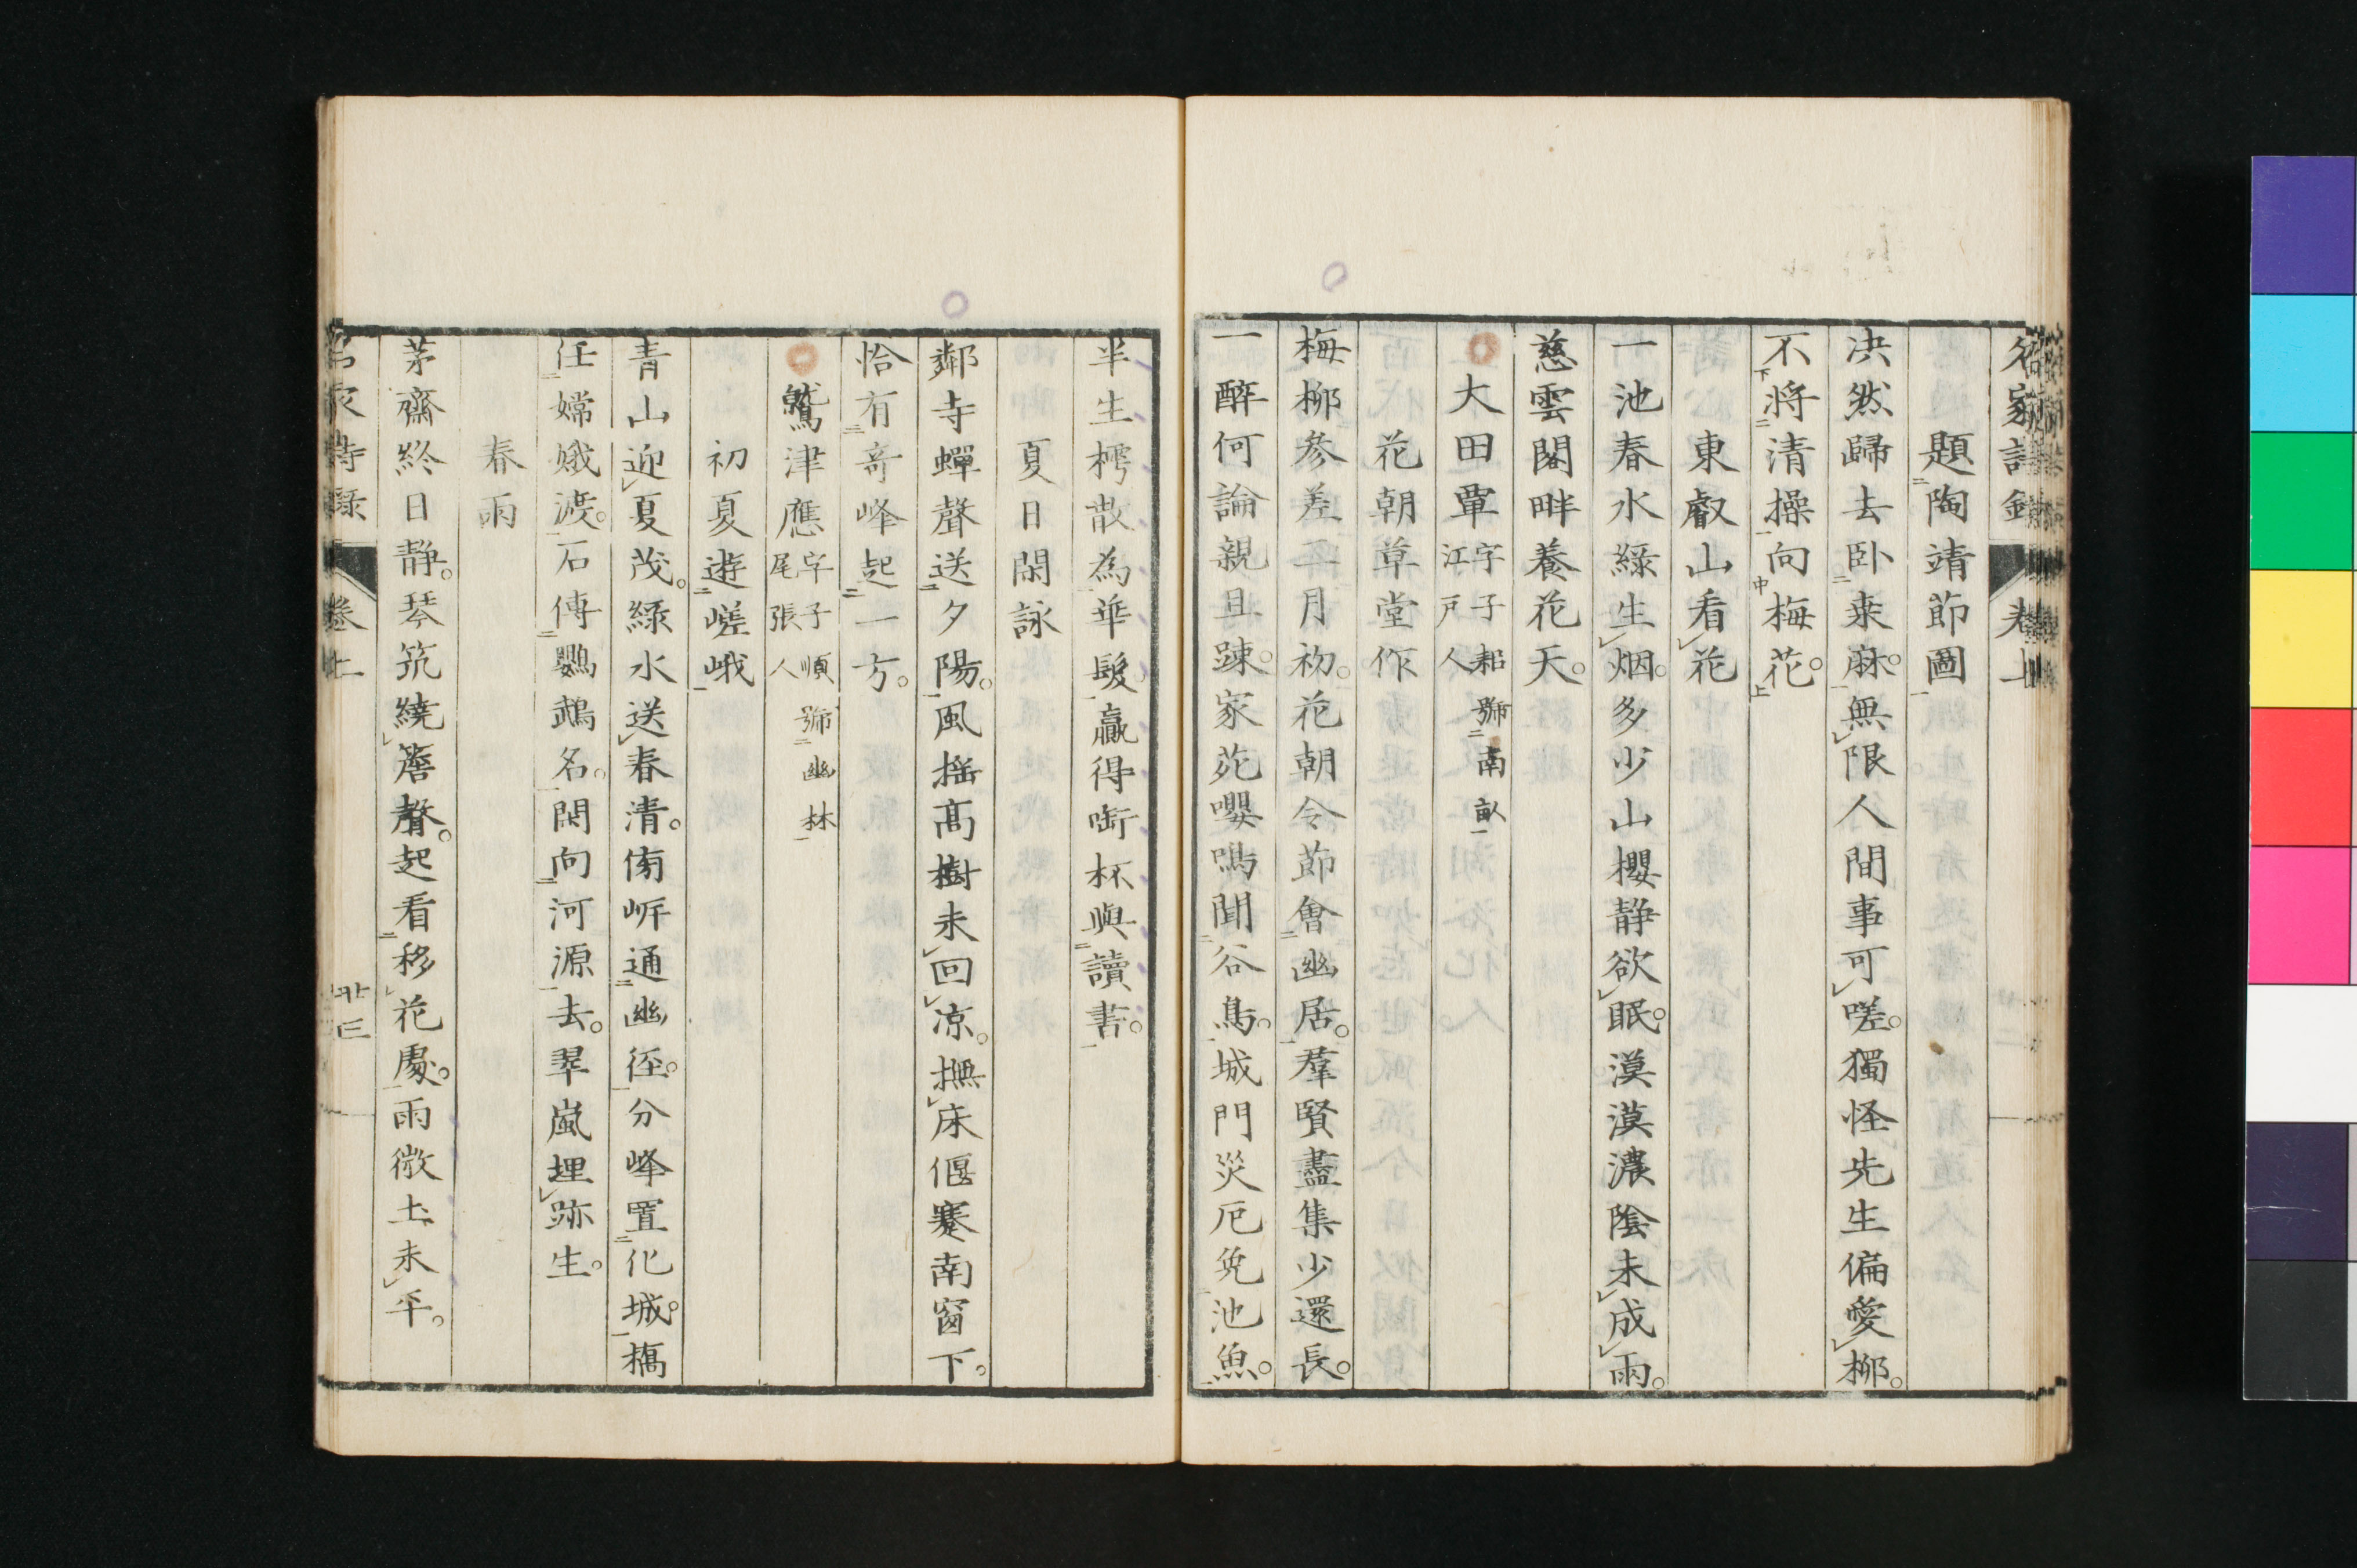 名家詩録 卷上
題陶靖節圖
決然歸去卧桒麻。無限人間事可嗟。獨怪先生偏愛柳。
不將清操向梅花。
東叡山看花
一池春水綠生烟。多少山櫻靜欲眠。漠漠濃陰未成雨。
慈雲閣畔養花天。
大田覃 字子耜號南畝 江戸人
花朝草堂作
梅柳參差二月初。花朝令節會幽居。羣賢盡集少還長。
一醉何論親且踈。家苑嚶鳴聞谷鳥。城門災厄免池魚。
半生樗散為華髮。贏得啣杯與讀書。
夏日閑詠
鄰寺蟬聲送夕陽。風搖高樹未回凉。撫床偃蹇南窗下。
恰有奇峰起一方。
鷲津應 字子順號幽林 尾張人
初夏遊嵯峨
青山迎夏茂。綠水送春清。傍岍通幽徑。分峰置化城。橋
任嫦娥渡。石傳鸚鵡名。閑向河源去。翠嵐埋跡生。
春雨
茅齋終日靜。琴筑繞簷聲。起看移花處。雨微土未平。
名家詩録 卷上 廿三